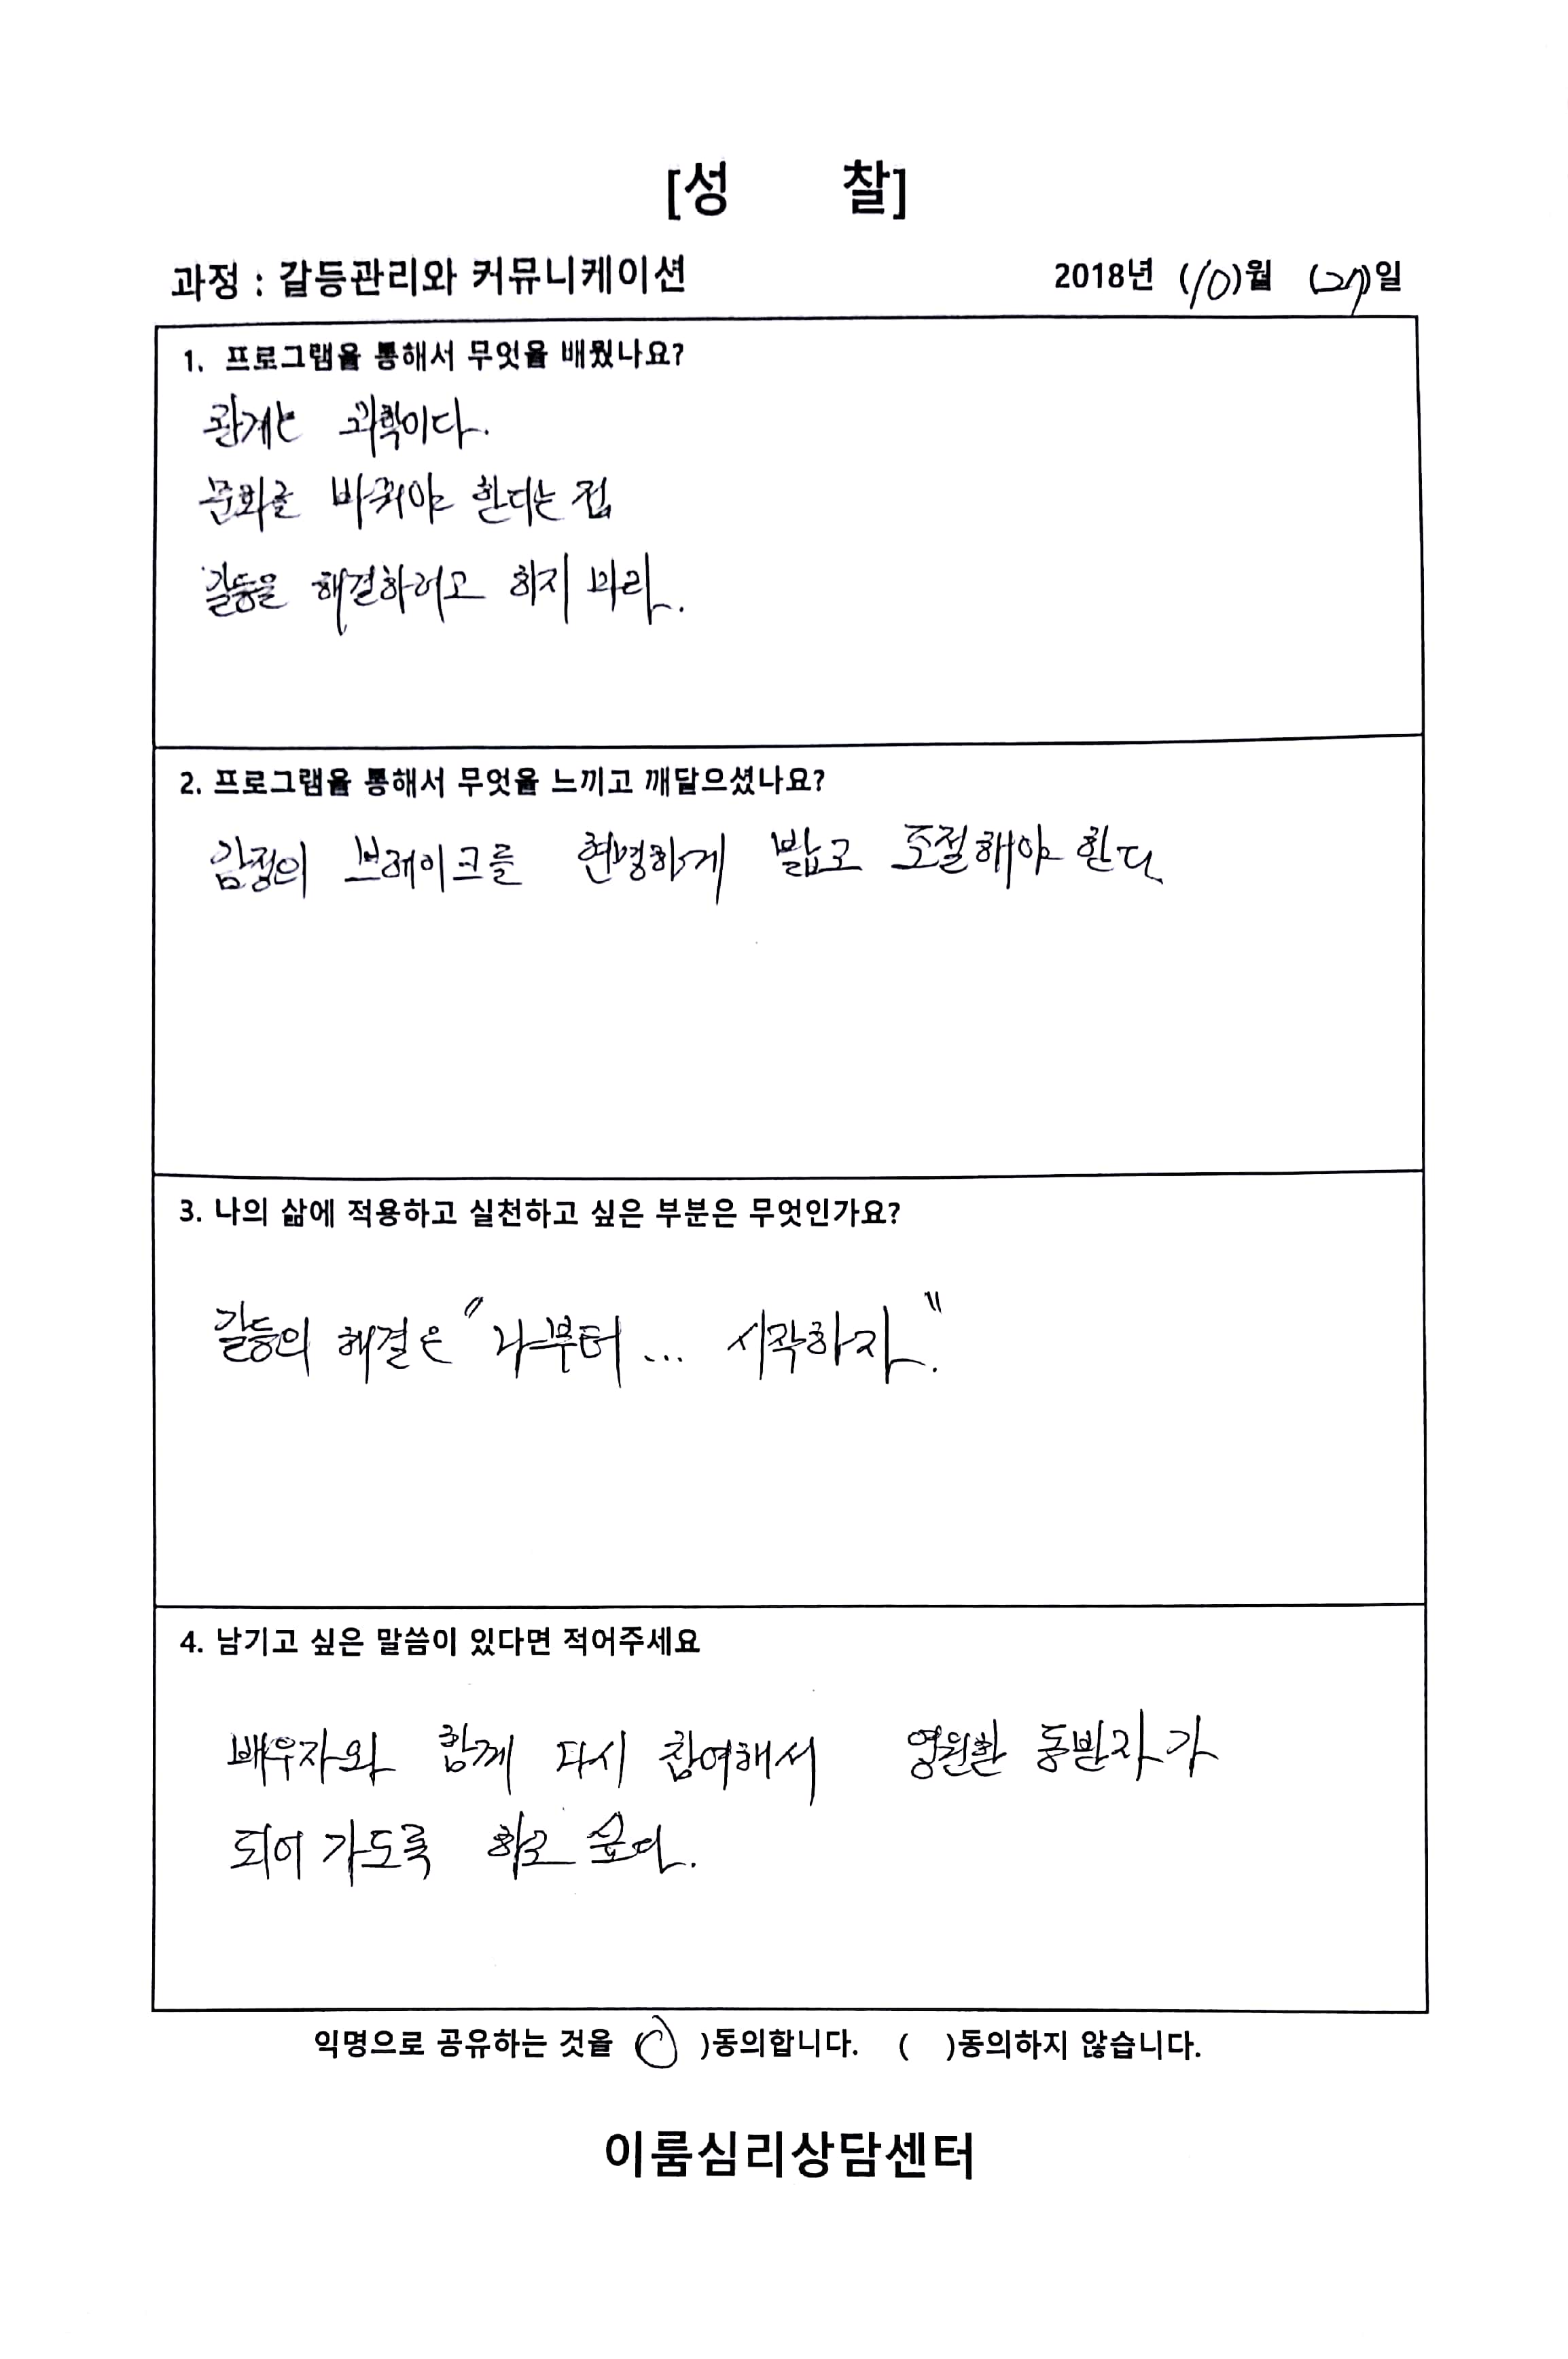 [성 찰]
과정 : 갈등관리와 커뮤니케이션 2018년 (10)월 (27)일
1. 프로그램을 통해서 무엇을 배웠나요?
관계는 과학이다.
문화를 바꿔야 한다는 점
갈등을 해결하려고 하지 마라.
2. 프로그램을 통해서 무엇을 느끼고 깨달으셨나요?
감정의 브레이크를 현명하게 밟고 조절해야 한다
3. 나의 삶에 적용하고 실천하고 싶은 부분은 무엇인가요?
갈등의 해결은 "나부터... 시작하자."
4. 남기고 싶은 말씀이 있다면 적어주세요
배우자와 함께 다시 참여해서 영원한 동반자가
되어 가도록 하고 싶다.
익명으로 공유하는 것을 (O)동의합니다. ( )동의하지 않습니다.
이룸심리상담센터